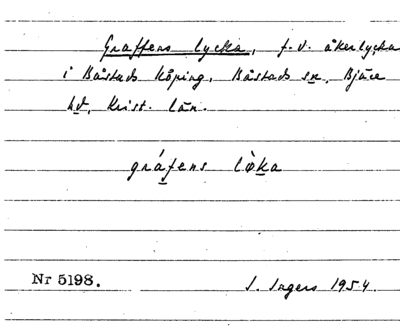 Graffens lycka, f.d. åkerlycka
i Båstads köping, Båstads sn, Bjäre
hd, Krist. län.
gráfens lø̀ka
Nr 5198.
I. Ingers 1954.